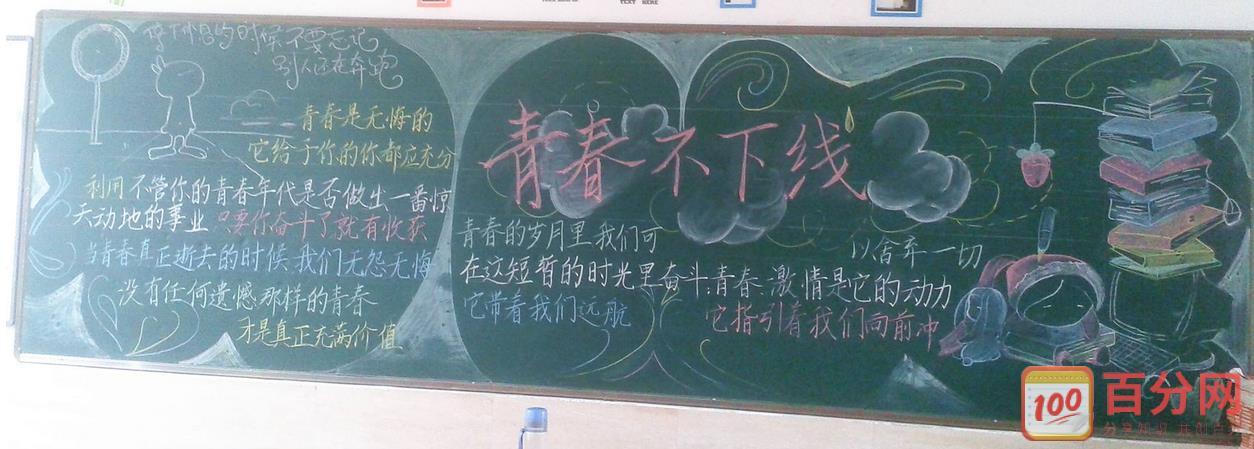 停下休息的时候不要忘记
别人还在奔跑
青春是无悔的
它给于你的你都应充分
利用 不管你的青春年代是否做出一番惊
天动地的事业 只要你奋斗了就有收获
当青春真正逝去的时候,我们无怨无悔
没有任何遗憾那样的青春
才是真正充满价值
青春不下线
青春的岁月里我们可
以舍弃一切
在这短暂的时光里奋斗;青春;激情是它的动力
它带着我们远航
它指引着我们向前冲
TEXT HERE
100
百分网
分享知识 共创